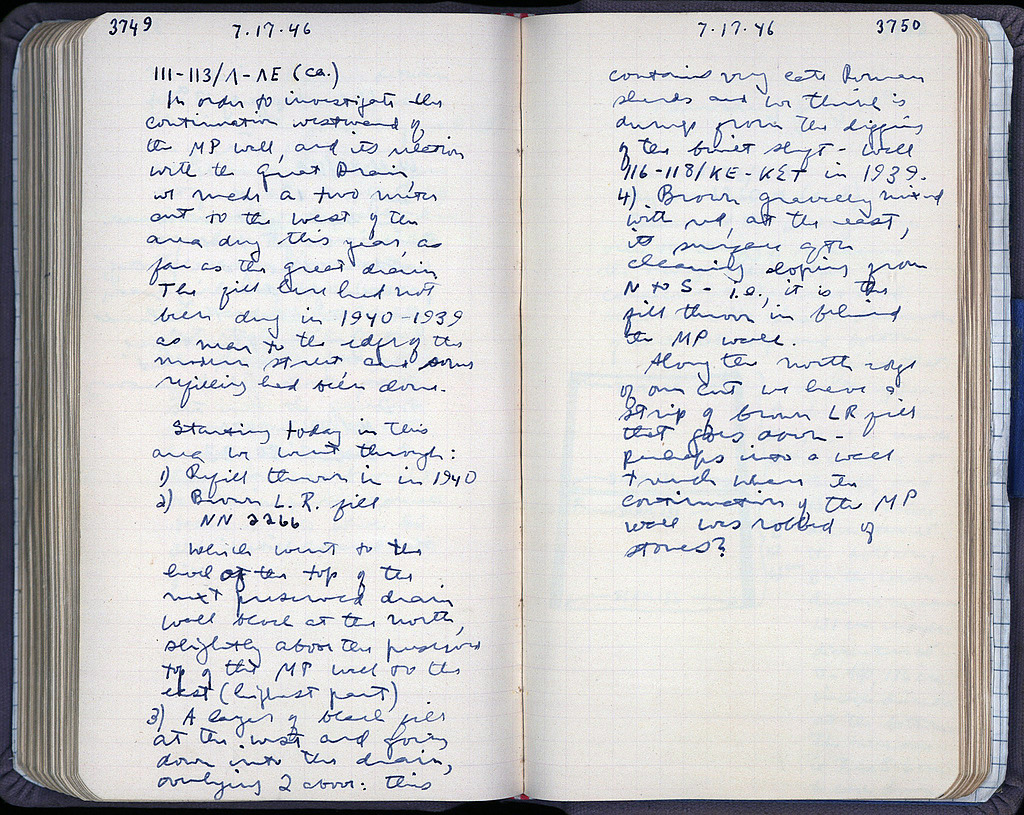 3749
7.17.46
111-113/Λ-ΛΕ (ca.)
In order to investigate the
continuation westward of
the MP wall, and its relation
with the Great Drain,
we made a two meter
cut to the west of the
area dug this year, as
far as the great drain.
The fill here had not
been dug in 1940-1939
as near to the edge of the
modern street and some
refilling had been done.
Starting today in this
area we went through:
1) Refill thrown in in 1940
2) Brown L.R. fill
NN 2266
which went to the
level of the top of the
next preserved drain
wall block at the north,
slightly above the preserved
top of the MP wall to the
east (highest part)
3) A layer of black fill
at the west and going
down into the drain,
overlying 2 above: this
7.17.46
3750
contained very late Roman
sherds and we think is
dump from the digging
of the brick shaft - well
116-118/ΚΕ-ΚΣΤ in 1939.
4) Brown gravelly mixed
with red, at the east,
its surface after
cleaning sloping from
N to S - i.e., it is the
fill thrown in behind
the MP wall.
Along the north edge
of our cut we have a
strip of brown LR fill
that goes down -
perhaps into a wall
trench where the
continuation of the MP
wall was robbed of
stones?